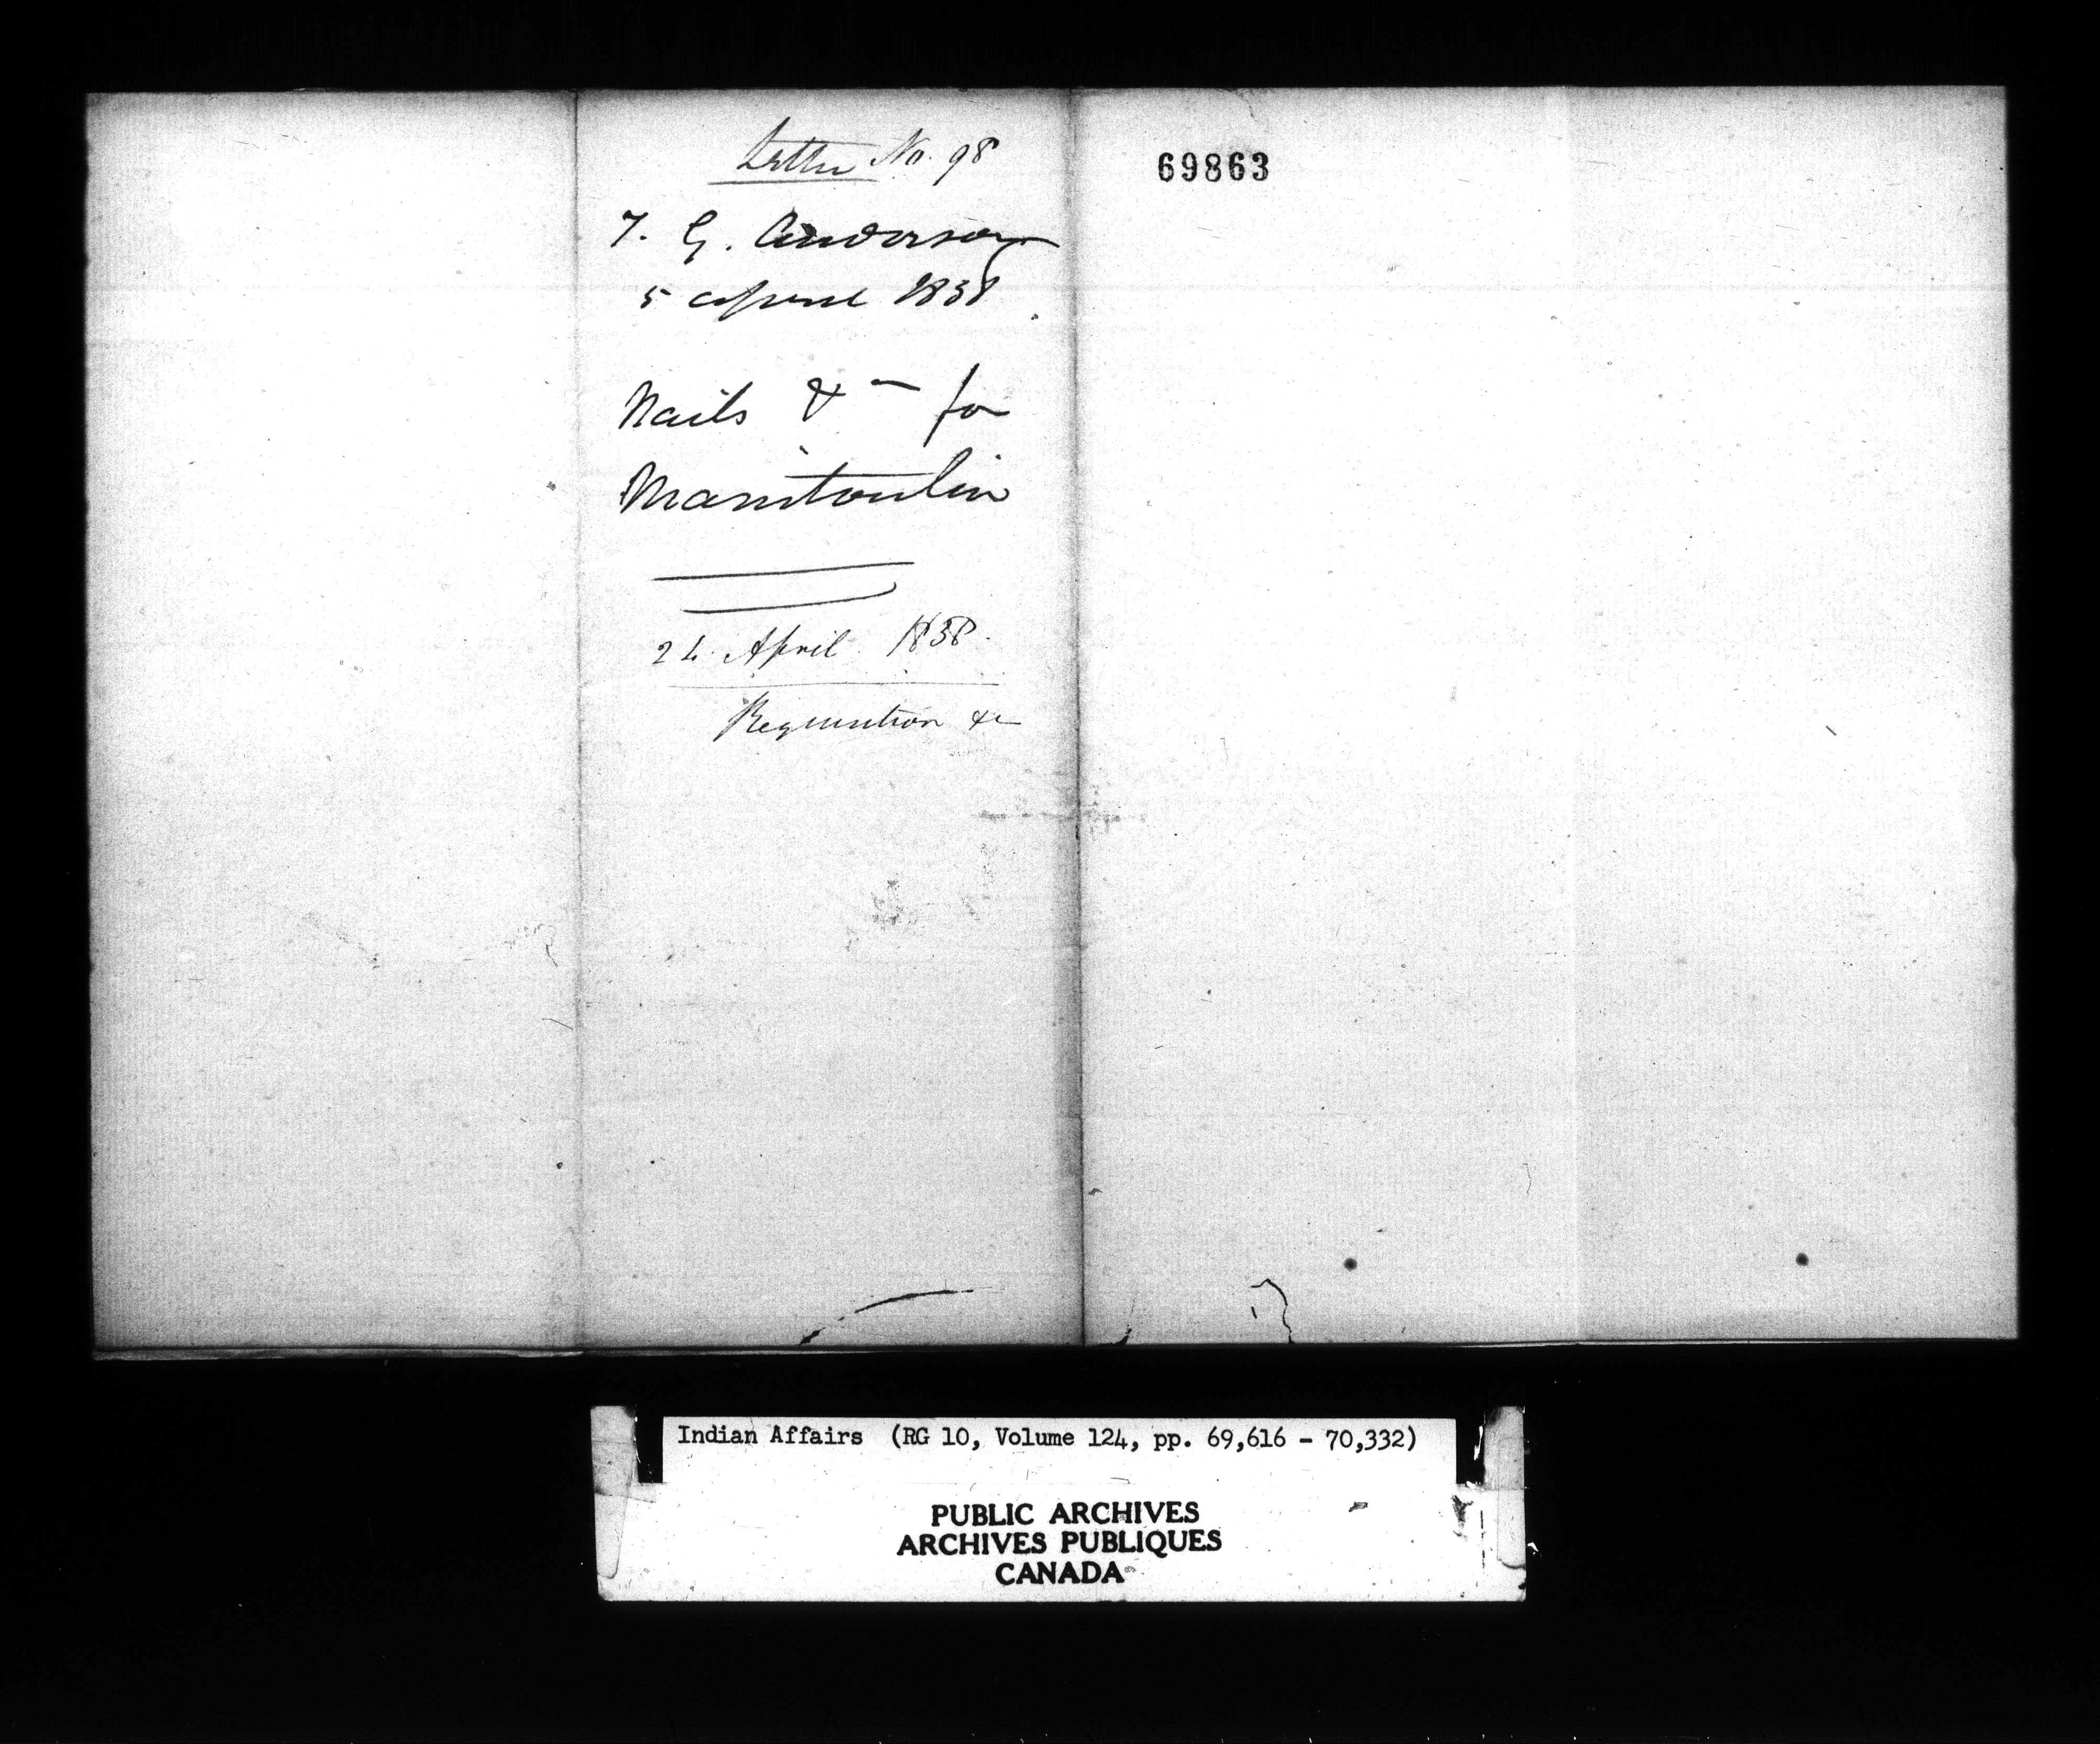 Letter No. 98
T. G. Anderson
5 April 1838
Nails & - for
Manitoulin
24 April 1838.
Requisition &c
69863
Indian Affairs (RG 10, Volume 124, pp. 69,616 - 70,332)
PUBLIC ARCHIVES
ARCHIVES PUBLIQUES
CANADA